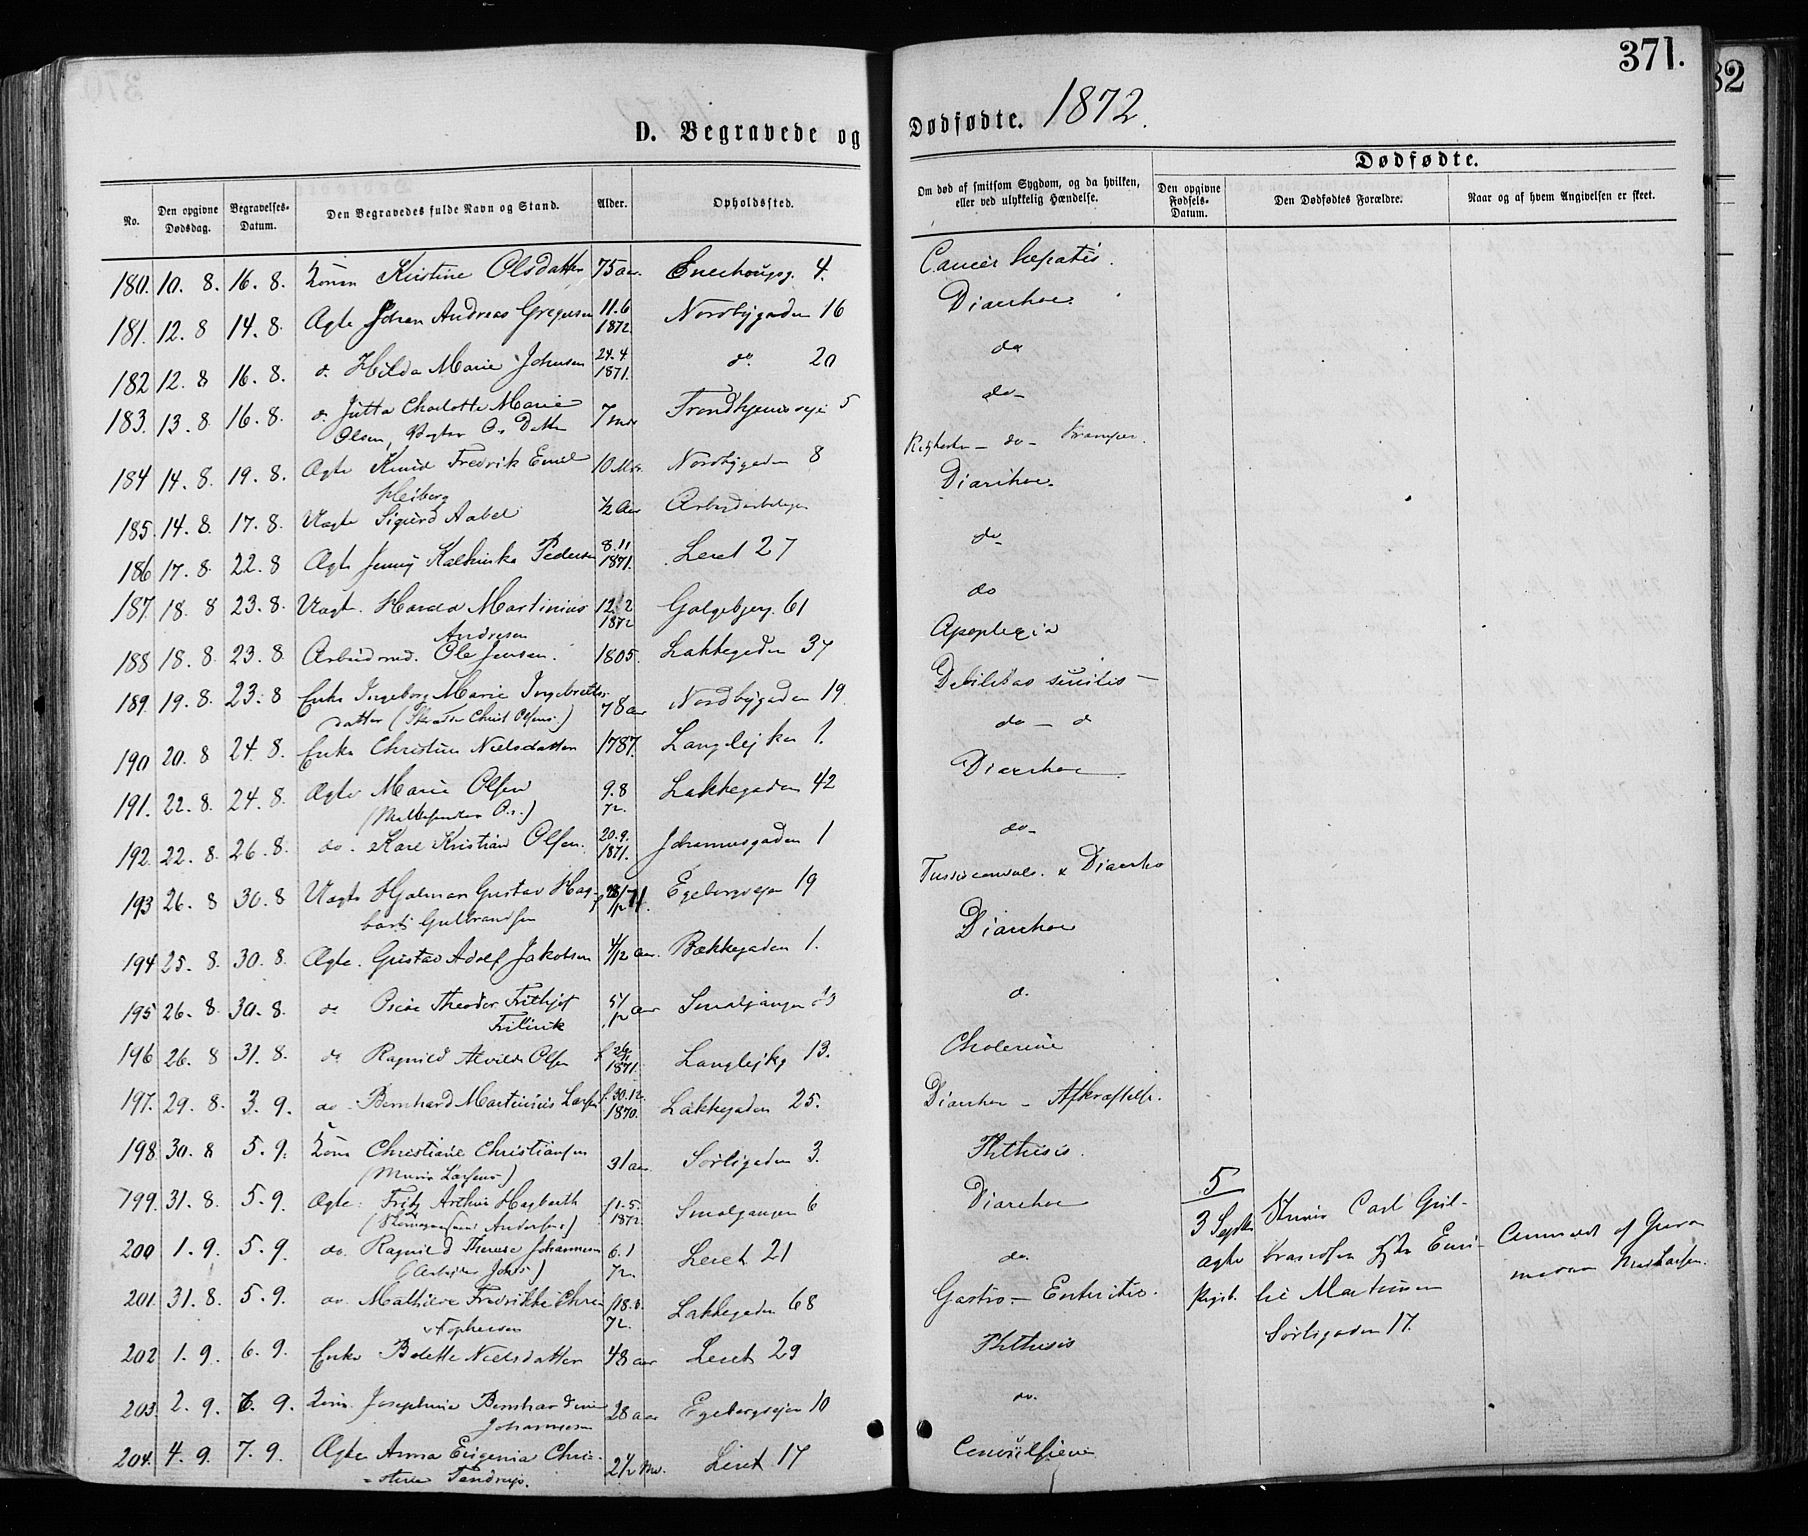 371.
82
D. Begravede og Dødfødte. 1872.
Dødfødte.
No.
Den opgivne Dødsdag.
Begravelses-Datum.
Den Begravedes fulde Navn og Stand.
Alder.
Opholdssted.
Om død af smitsom Sygdom, og da hvilken, eller ved ulykkelig Hændelse.
Den opgivne Fødsels-Datum.
Den Dødfødtes Forældre.
Naar og af hvem Angivelsen er skeet.
180. 10. 8. 16. 8. Kone Kristine Olsdatter 75 aar. 4. Cancer hepatis.
181. 12. 8 14. 8. Ægte Johan Andreas Gregersen 11.6 1872. Nordbygaden 16 Diarrhoe.
182 12. 8 16. 8. d. Hilda Marie Johnsen 24.4 1871. do. 20 do
183. 13. 8 16. 8. d. Jutta Charlotte Marie 7 mdr Trondhjemsvei 5 do-
Olsen,
184 14. 8. 19. 8. Ægte Knud Fredrik Emil 10 Mdr. Nordbygaden 8 - do - Kramper.
Heiberg
185. 14. 8. 17. 8. Uægte Sigurd Aabel ½ Aar Diarrhoe.
186 17. 8. 22. 8 Ægte Jenny Kathinka Pedersen 8.11 1871. Leret 27 do-
187. 18. 8 23. 8. Uægt. Harald Martinius 12.2 1872 Galgebjerg. 61 do
Andresen
188 18. 8. 23. 8 Arbeidsmd. Ole Jensen. 1805. Lakkegaden 37 Apoplexia
189. 19. 8. 23. 8 Enke Ingeborg Marie Ingebretts- 78 aar Nordbygaden 19. Debilitas senilis -
datter
190 20. 8 24. 8. Enke Christine Nielsdatter 1787. Langleiken 1. do - d
191. 22. 8. 24. 8. Ægte Marie Olsen 9.8 72. Lakkegaden 42 Diarrhoe
192. 22. 8. 26. 8. do. Karl Kristian Olsen. 20.9. 1871. Johannesgaden 1 do-
193 26. 8 30. 8 Uægte Hjalmar Gustav Hag- Egebergveien 19 Tussis convuls. & Diarrhoe
bart Gulbrandsen
194 25. 8. 30. 8. Ægte. Gustav Adolf Jakobsen 4/12 aar. Bækkegaden 1. Diarrhoe
195 26. 8. 30. 8. do Oscar Theodor Frithjof 5/12 aar Smalgangen d.
196 26. 8 31. 8. do Ragnild Alvilde Olsen 1871. Langleikg 13. Cholerine
197. 29. 8. 3. 9. do - Bernhard Martinius Larsen f. 30.12. 1870. Lakkegaden 25. Diarrhoe - Afkræftelse.
198 30. 8 5. 9. Kone Christiane Christiansen 31 aar. Sørligaden 3. Phthisis.
199. 31. 8. 5. 9. Ægte. Fritz Arthur Hagbarth f 1.5. 1872. Smalgangen 6 Diarrhoe
200 1. 9. 5. 9. do. Ragnild Therese Johannesen 6.1 72. Leret 21 do.
201. 31. 8. 5. 9. do. Mathilde Fredrikke Chri- f 18.6. 72. Lakkegaden 68 Gastro - Enteritis.
stophersen
202 1. 9. 6. 9. Enke Bolette Nielsdatter 48 aar Leret 29 Phthisis
203. 2. 9. 7. 9. Kone. Josephine Bernhardine 28 aar Egebergveien 10 do.
Johannesen
204. 4. 9. 7. 9. Ægte Anna Eugenia Chri- 2½ Md. Leret 17
5
3 Septbr
ægte
Carl Gul-
brandsen & Emi-
lie Martinsen
Sørligaden 17.
Anmeldt af Gjord-